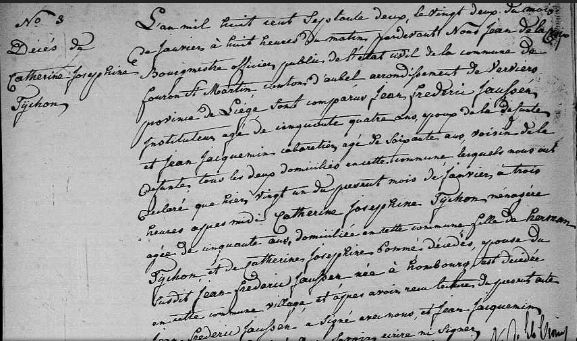 No 3
Décès de
Catherine Josephine
Tychon
L'an mil huit cent septante deux, le vingt deux du mois
de Janvier à huit heures du matin pardevant Nous Jean de la
Bourgmestre officier public de l'état civil de la commune de
fouron St Martin canton d'aubel arrondissement de Verviers
province de Liège sont comparus Jean frederic Janssen
Instituteur agé de cinquante quatre ans, epoux de la défunte
et Jean Jacquemin cabaretier agé de soixante ans voisin de la
defunte, tous les deux domiciliés en cette commune lesquels nous ont
déclaré que hier vingt un du present mois de Janvier, à trois
heures apes midi Catherine Josephine Tychon ménagère
agée de cinquante ans, domiciliée en cette commune fille de herman
Tychon et de Catherine Josephine Bonme décédés, epouse du
susdit Jean frederic Janssen née à hombourg, est décédée
en cette commune village et apes avoir reu lecture du present acte
Jean frederic Janssen a signé avec nous, et Jean Jacquemin
ecrire ni signer